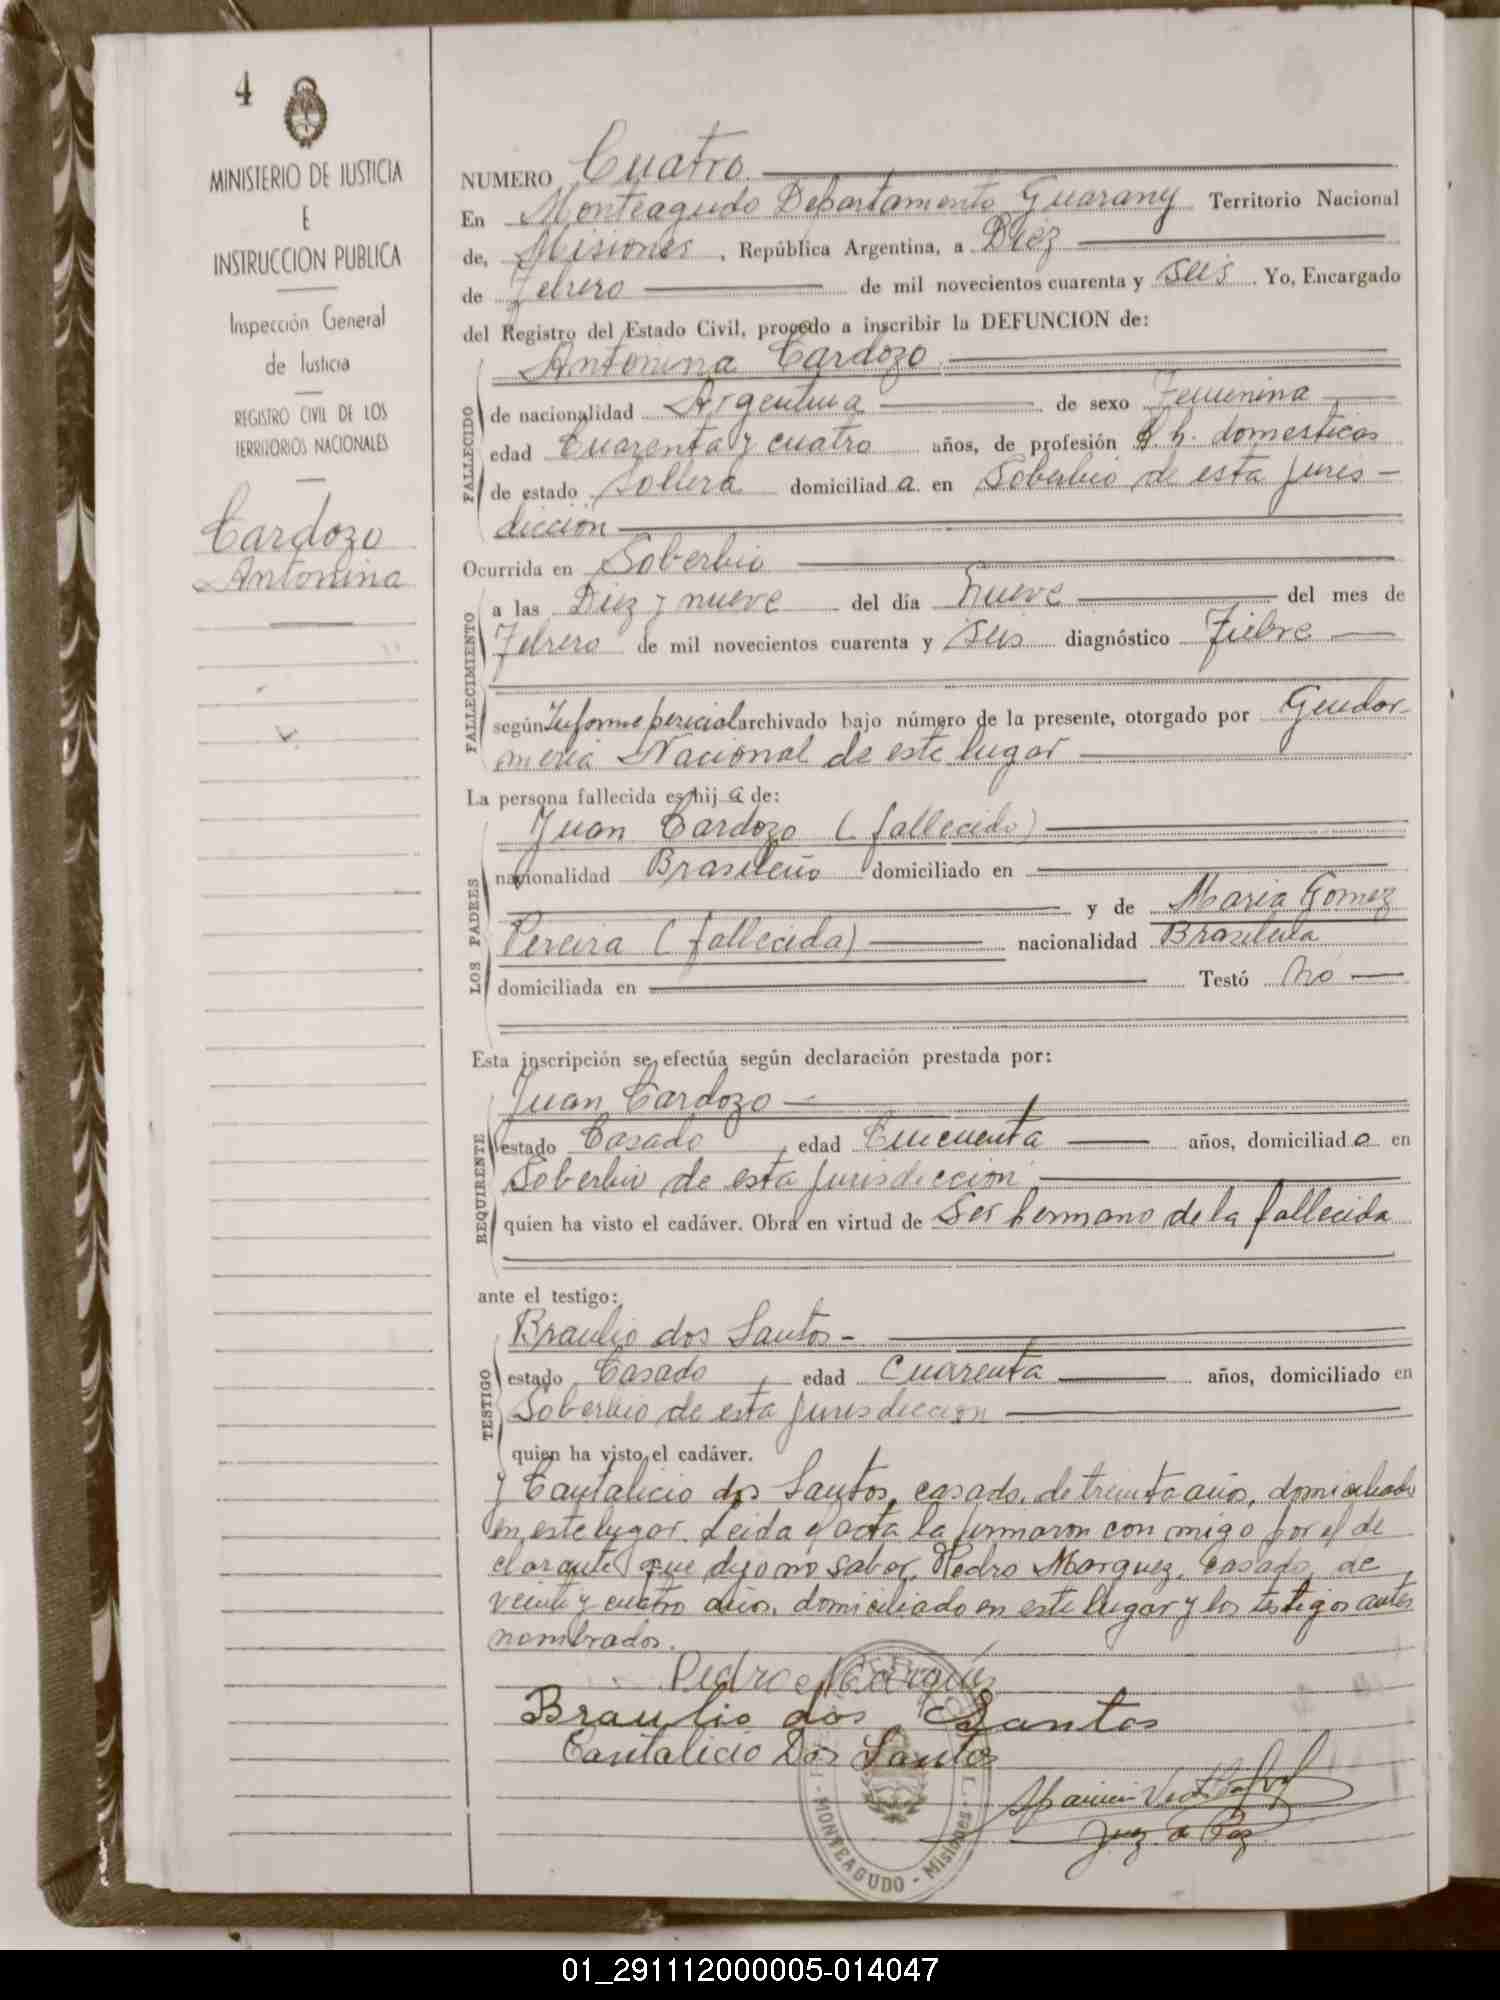 4
MINISTERIO DE JUSTICIA
E
INSTRUCCION PUBLICA
Inspección General
de Justicia
REGISTRO CIVIL DE LOS
TERRITORIOS NACIONALES
Cardozo
Antonina
NUMERO Cuatro
En Monteagudo Departamento Guarany Territorio Nacional
de, Misiones, República Argentina, a Diez
de Febrero de mil novecientos cuarenta y seis. Yo, Encargado
del Registro del Estado Civil, procedo a inscribir la DEFUNCION de:
FALLECIDO
Antonina Cardozo
de nacionalidad Argentina de sexo Femenina
edad Cuarenta y cuatro años, de profesión q. h. domesticos
de estado soltera domiciliada en Soberbio de esta juris-
dicción
Ocurrida en Soberbio
FALLECIMIENTO
a las Diez y nueve del día nueve del mes de
Febrero de mil novecientos cuarenta y seis diagnóstico Fiebre
según Informe pericial archivado bajo número de la presente, otorgado por Gendar-
meria Nacional de este lugar
La persona fallecida es hija de:
LOS PADRES
Juan Cardozo (fallecido)
nacionalidad Brasileño domiciliado en
y de Maria Gomez
Pereira (fallecida) nacionalidad Brasileña
domiciliada en Testó no
Esta inscripción se efectúa según declaración prestada por:
REQUIRENTE
Juan Cardozo
estado Casado, edad Cincuenta años, domiciliado en
Soberbio de esta jurisdiccion
quien ha visto el cadáver. Obra en virtud de Ser hermano de la fallecida
ante el testigo:
TESTIGO
Braulio dos Santos-
estado Casado, edad Cuarenta años, domiciliado en
Soberbio de esta jurisdiccion
quien ha visto el cadáver.
y Cantalicio dos Santos, casado, de treinta años, domiciliado
en este lugar. Leida el acta la firmaron con migo por el de
clarante que dijo no saber, Pedro Marquez, casado, de
veinte y cuatro años, domiciliado en este lugar y los testigos antes
nombrados.
Pedro Marques
Braulio dos Santos
Cantalicio Dos Santos
Juez de Paz
MONTEAGUDO - Misiones
01_291112000005-014047